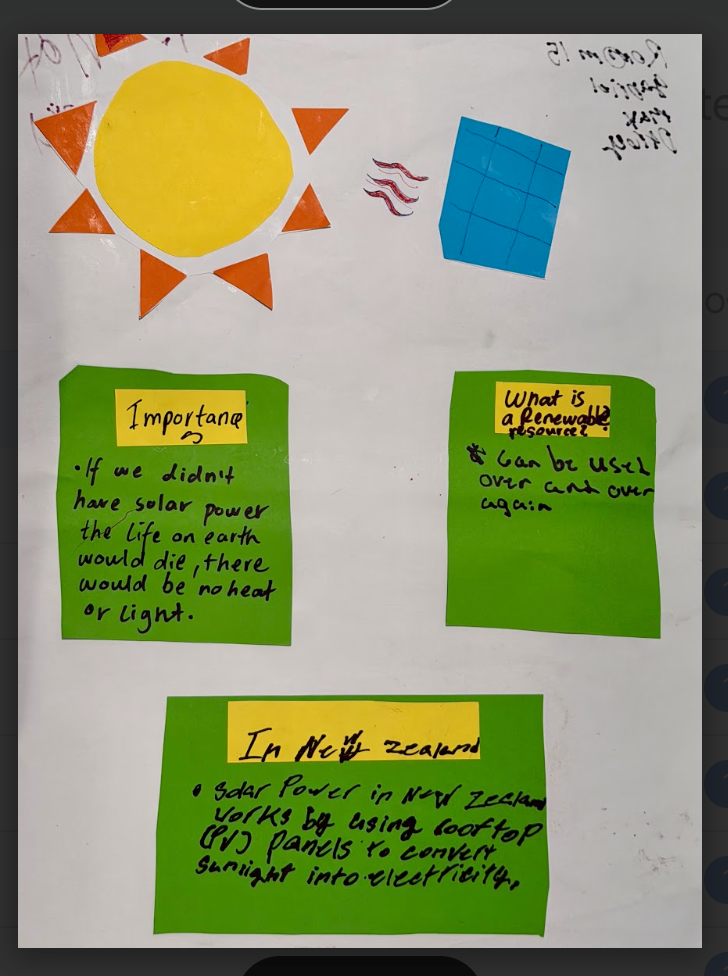 Room 15
Importance
• If we didn't
have solar power
the life on earth
would die, there
would be no heat
or light.
What is
a Renewable?
resource?
* Can be used
over and over
again
In New Zealand
• Solar Power in New Zealand
works by using rooftop
(PV) panels to convert
sunlight into electricity.